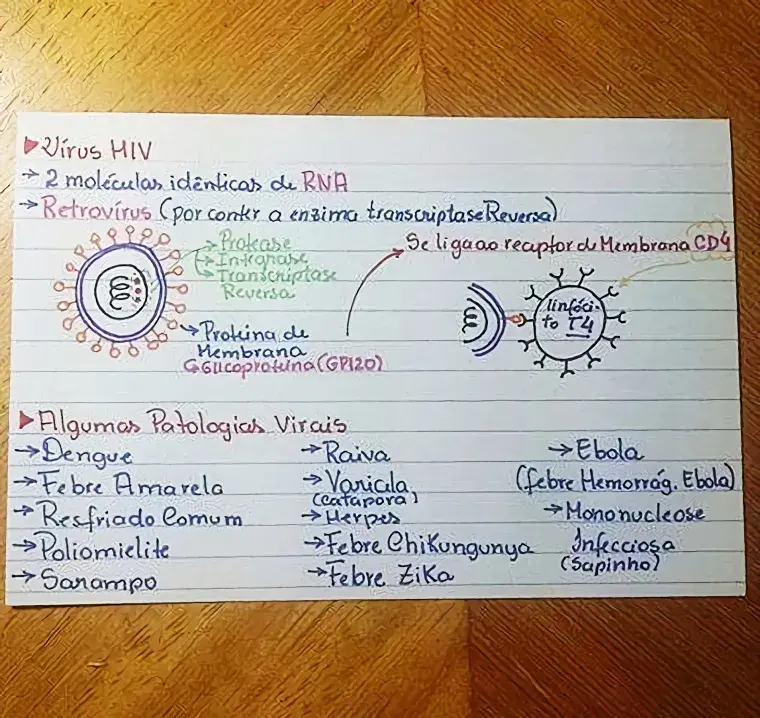 ▶Vírus HIV
→ 2 moléculas idênticas de RNA
→ Retrovírus (por conter a enzima transcriptase Reversa)
→ Protease
→ Integrase
→ Transcriptase
Reversa
→ Proteína de
Membrana
↳ Glicoproteína (GP120)
Se liga ao receptor de Membrana CD4
linfóci-
to T4
▶Algumas Patologias Virais
→ Dengue
→ Febre Amarela
→ Resfriado Comum
→ Poliomielite
→ Sarampo
→ Raiva
→ Varicela
(catapora)
→ Herpes
→ Febre Chikungunya
→ Febre Zika
→ Ebola
(febre Hemorrág. Ebola)
→ Mononucleose
Infecciosa
(Sapinho)